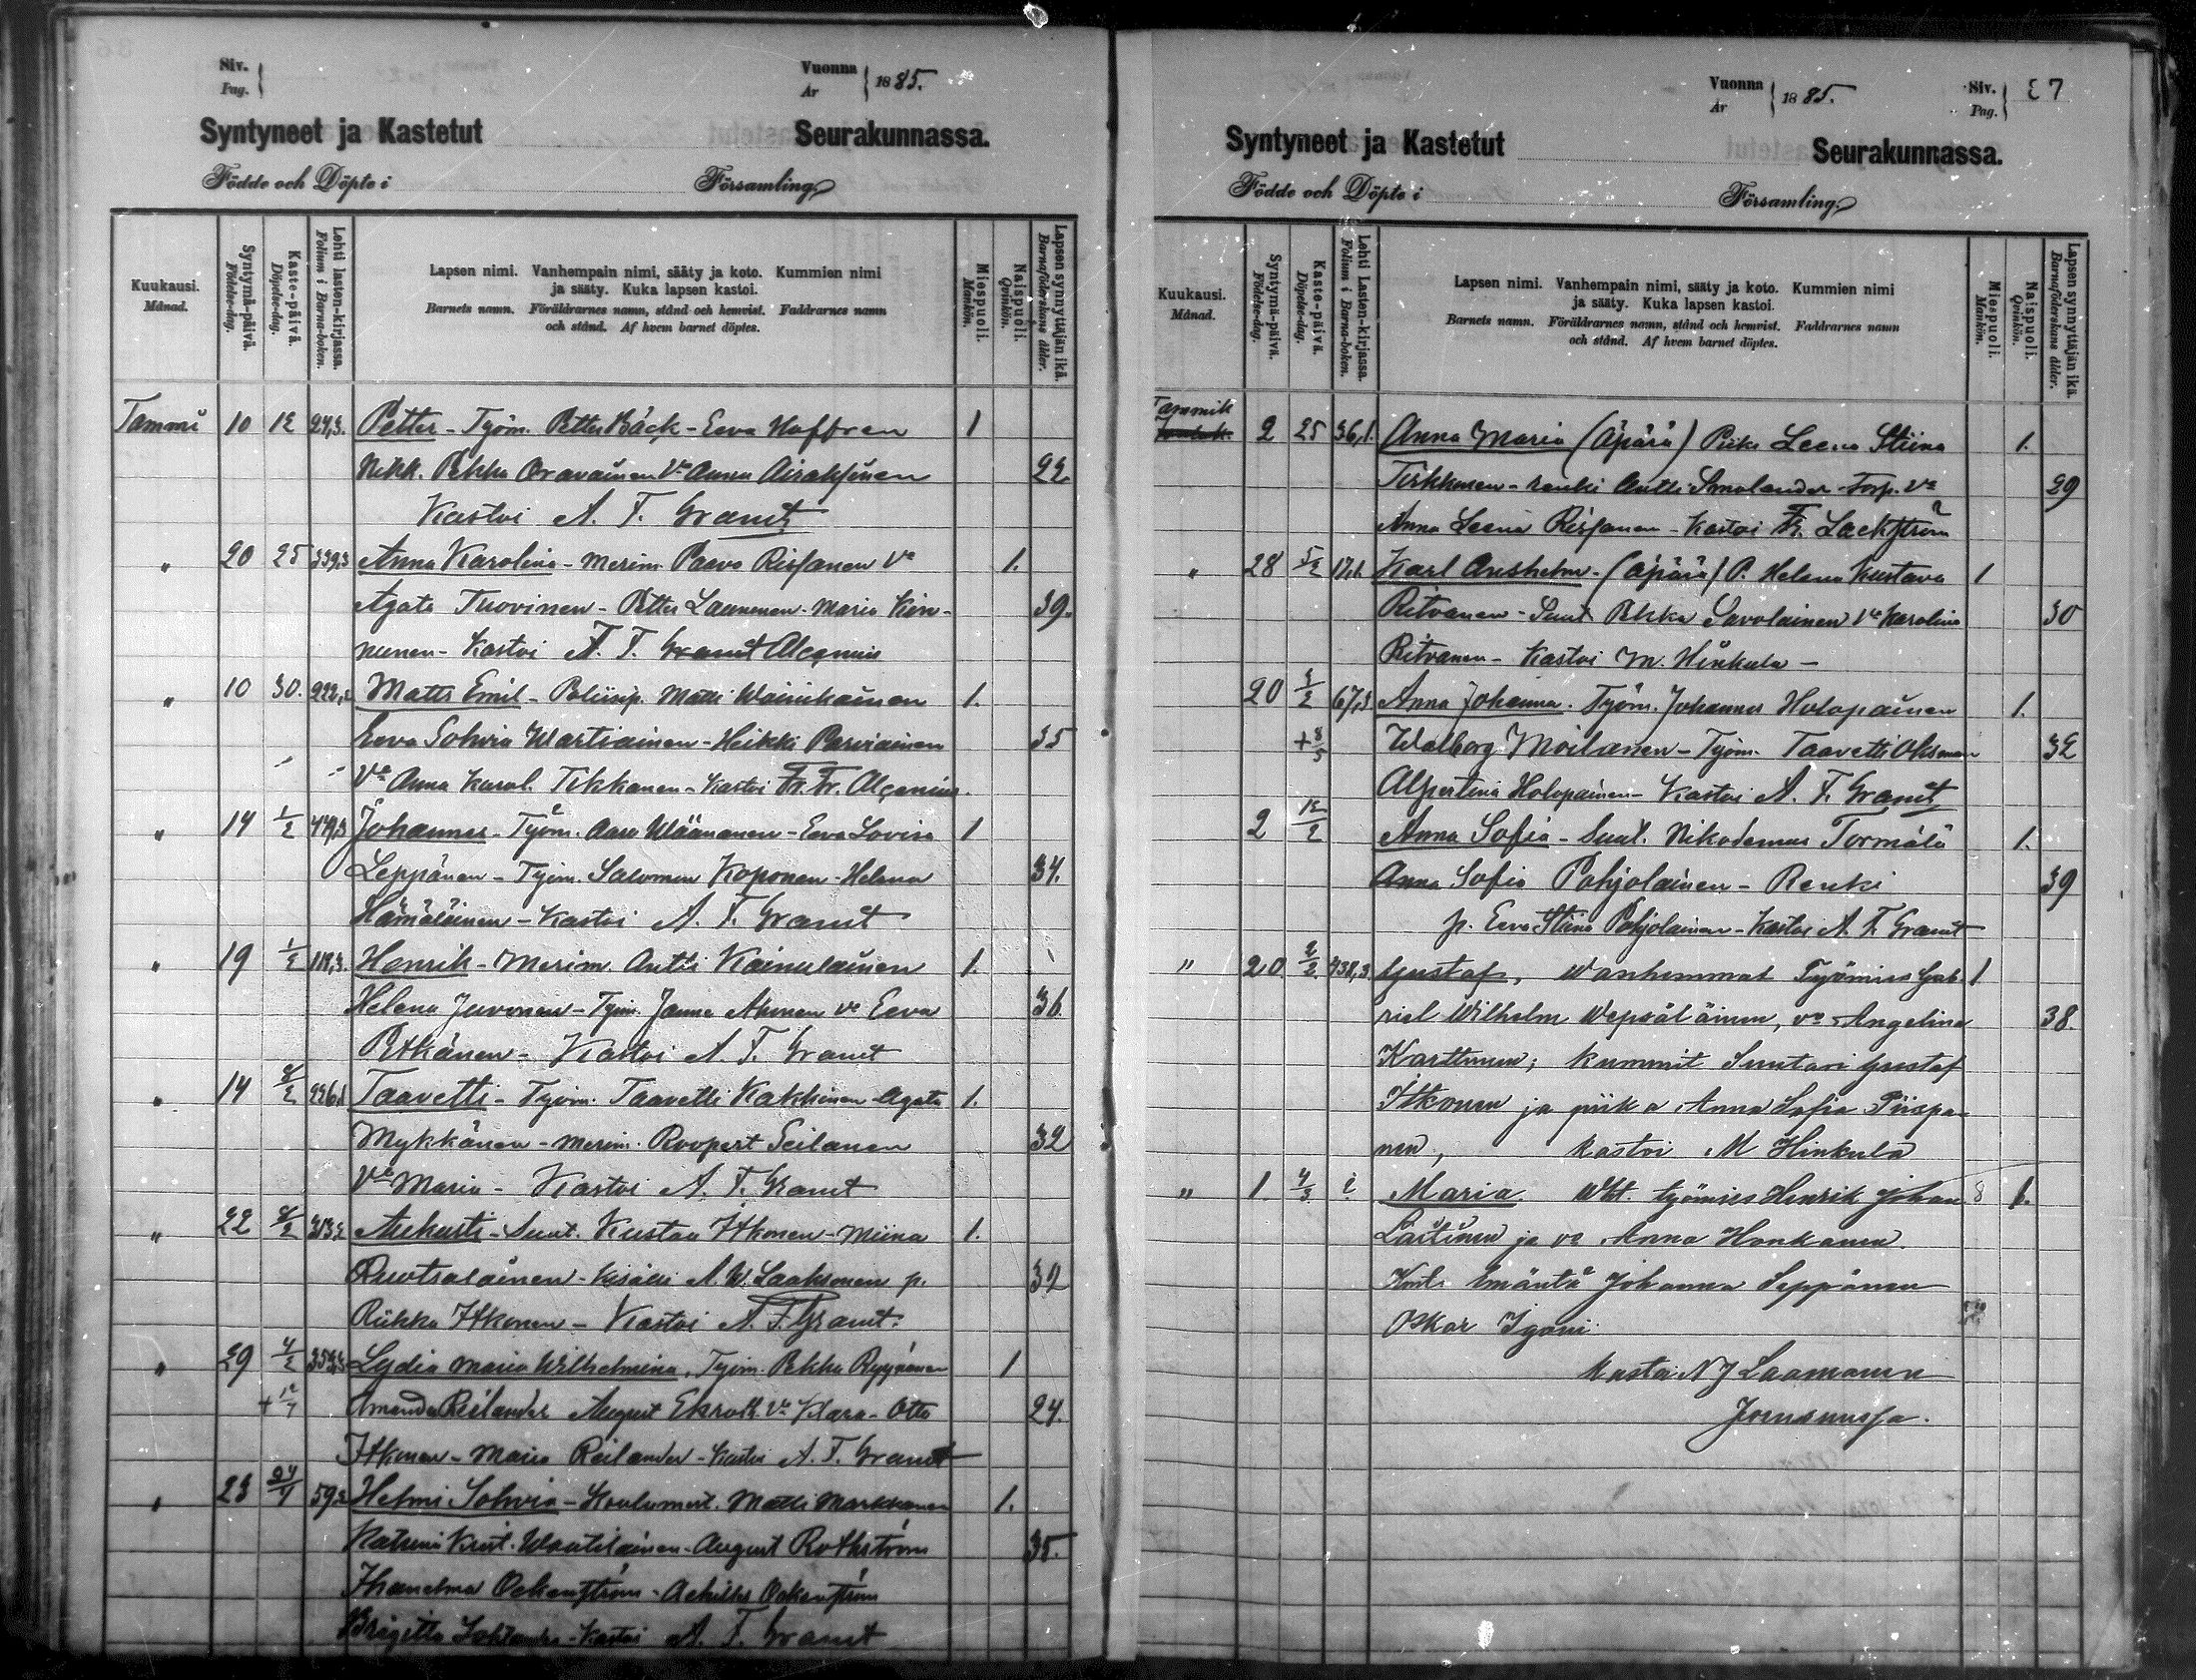 Siv.
Pag.
Vuonna
År
1885.
Syntyneet ja Kastetut Seurakunnassa.
Födde och Döpte i Församling
Kuukausi.
Månad.
Syntymä-päivä.
Födelse-dag.
Kaste-päivä.
Döpelse-dag.
Lehti lasten-kirjassa.
Folium i Barna-boken.
Lapsen nimi. Vanhempain nimi, sääty ja koto. Kummien nimi
ja sääty. Kuka lapsen kastoi.
Barnets namn. Föräldrarnes namn, stånd och hemvist. Faddrarnes namn
och stånd. Af hvem barnet döptes.
Miespuoli.
Mankön.
Naispuoli.
Qvinkön.
Lapsen synnyttäjän ikä.
Barnaföderskans ålder.
Tammi 10 12 Petter - Työm. Petter Bäck - Eeva Hoffren 1
Pekka Oravainen Vo Anna Airaksinen 22
Kastoi A. F. Granit
" 20 25 339,3 Anna Karolina - Merim. Paavo Rissanen Vo 1.
Agata Tuovinen - Petter Laamanen - Maria Kin- 39.
nunen - Kastoi A. F. Granit
" 10 30. Matts Emil - Matti Wainikainen 1.
Eeva Sohvia Wartiainen - Heikki Parviainen 35
Vo Anna Karol. Tikkanen - Kastoi
" 14 1/2 Johannes - Työm. Aaro Wäänänen - Eeva Lovisa 1
Leppänen - Työm. Salomon Koponen - Helena 34.
Hämäläinen - Kastoi A. F. Granit
" 19 1/2 Henrik - Merim. Antti Kainulainen 1.
Helena Juvonen - Työm. Janne Ahonen vo Eeva 36
Pitkänen - Kastoi A. F. Granit
" 14 8/2 226,1 Taavetti - Työm. Taavetti Kakkinen - Agata 1.
Mykkänen - Merim. Roopert Seilanen 32
Vo Maria - Kastoi A. F. Granit
" 22 8/2 Aukusti - Suut. Kustaa Itkonen - Miina 1.
Ruotsalainen - Kisälli A. W. Laaksonen p. 32
Riikka Itkonen - Kastoi A. F. Granit.
" 29 4/2 Lydia Maria Wilhelmina, Työm. Pekka Ryynänen 1
Amanda Reilander August Ekroth vo Klara - Otto 24.
Itkonen - Maria Reilander - Kastoi A. F. Granit
" 23 24/4 Helmi Sohvia - Koulumest. Matti Markkanen 1.
Katrina Krist. Waatilainen - August Rothström 35.
Ockenström - Achilles Ockenström
Brigitta - Kastoi A. F. Granit
Vuonna
År
1885.
Siv.
Pag.
27
Syntyneet ja Kastetut Seurakunnassa.
Födde och Döpte i Församling
Kuukausi.
Månad.
Syntymä-päivä.
Födelse-dag.
Kaste-päivä.
Döpelse-dag.
Lehti Lasten-kirjassa.
Folium i Barna-boken.
Lapsen nimi. Vanhempain nimi, sääty ja koto. Kummien nimi
ja sääty. Kuka lapsen kastoi.
Barnets namn. Föräldrarnes namn, stånd och hemvist. Faddrarnes namn
och stånd. Af hvem barnet döptes.
Miespuoli.
Mankön.
Naispuoli.
Qvinkön.
Lapsen synnyttäjän ikä.
Barnaföderskans ålder.
Tammik
2 25 36,1. Anna Maria (Äpärä) Piika Leena Stiina 1.
Tirkkonen - renki Antti Smolander - Torp. vo 29
Anna Leena Rissanen - Kastoi Fr. Lackström
" 28 5/2 17,1. Karl Anshelm - (äpärä) P. Helena Kustava 1
Ritvanen - Suut Pekka Savolainen Vo Karolina 30
Ritvanen - Kastoi M. Hinkula -
20 67,3 Anna Johanna. Työm. Johannes Holopainen 1.
+ 8/5 Walborg Moilanen - Työm. Taavetti Oksman 32
Alpertina Holopainen - Kastoi A. F. Granit
2 12/2 Anna Sofia - Suut. Nikodemus Tormälä 1.
Anna Sofia Pohjolainen - Renki 39
p. Eeva Stina Pohjolainen - Kastoi A. F. Granit
" 20 2/2. Gustaf, Wanhemmat Työmies Gab- 1
riel Wilhelm Wepsäläinen, vo Angelina 38.
Karttunen; kummit Suutari Gustaf
Itkonen ja piika Anna Sofia Piispa-
nen, kastoi M Hinkula
" 1. 4/3 Maria Wht. työmies Henrik Johan 1.
Laitinen ja vo Anna Honkanen.
Emäntä Johanna Seppänen
Oskar Igoni
Kastoi N J Laamanen
Joensuussa.